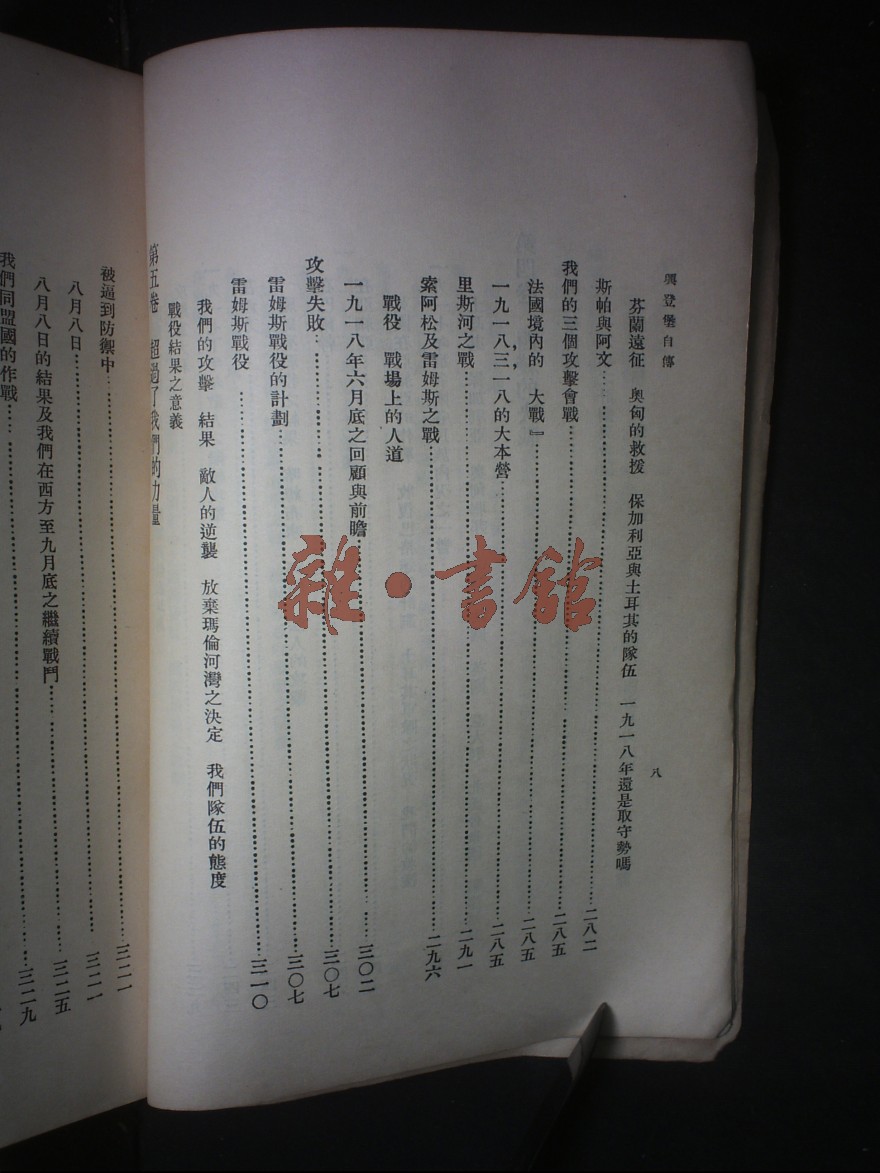 興登堡自傳
八
芬蘭遠征　奧匈的救援　保加利亞與土耳其的隊伍　一九一八年還是取守勢嗎
斯帕與阿文……二八二
我們的三個攻擊會戰……二八五
法國境內的　大戰』……二八五
一九一八，三，一八的大本營……二八五
里斯河之戰……二九一
索阿松及雷姆斯之戰……二九六
戰役　戰場上的人道
一九一八年六月底之回顧與前瞻……三〇二
攻擊失敗……三〇七
雷姆斯戰役的計劃……三〇七
雷姆斯戰役……三一〇
我們的攻擊　結果　敵人的逆襲　放棄瑪倫河灣之決定　我們隊伍的態度
戰役結果之意義
第五卷　超過了我們的力量
被逼到防禦中……三二一
八月八日……三二一
八月八日的結果及我們在西方至九月底之繼續戰鬥……三二五
我們同盟國的作戰……三二九
雜·書館